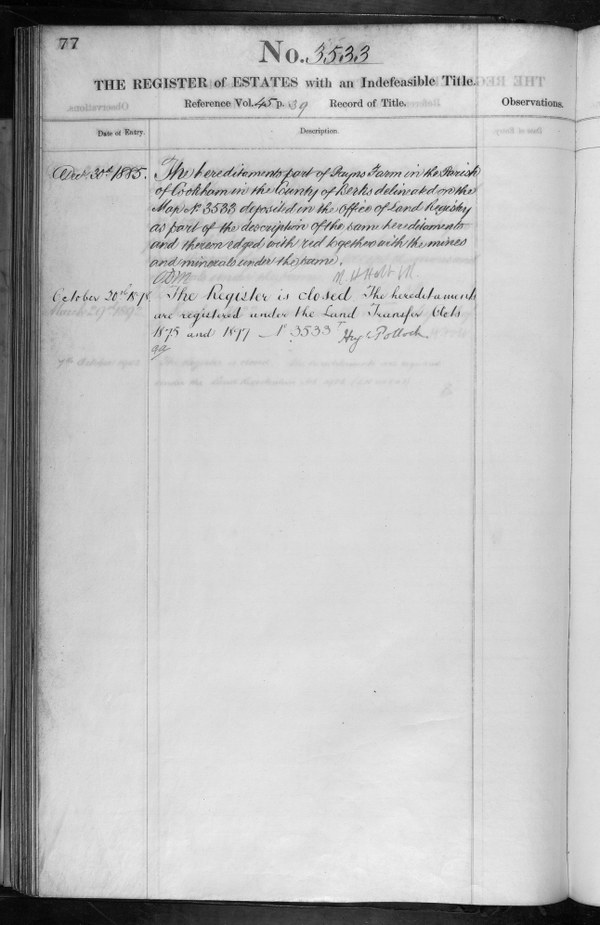 77
No. 3533
THE REGISTER of ESTATES with an Indefeasible Title.
Reference Vol. 45 p. 39 Record of Title.
Observations.
Date of Entry.
Description.
30th 1885.
The hereditaments part of Farm in the Parish
of Cookham in the County of Berks delineated on the
Map No. 3533 deposited in the Office of Land Registry
as part of the description of the same hereditaments
and thereon edged with red together with the mines
and minerals under the same.
October 20th
The Register is closed The hereditaments
are registered under the Land Transfer Acts
1875 and 1897 3533